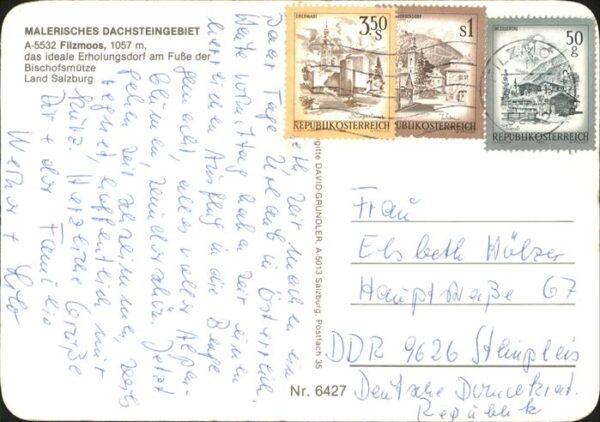 MALERISCHES DACHSTEINGEBIET
A-5532 Filzmoos, 1057 m,
das ideale Erholungsdorf am Fuße der
Bischofsmütze
Land Salzburg
OBERWART
3.50 S
REPUBLIK ÖSTERREICH
S1
REPUBLIK ÖSTERREICH
50 g
REPUBLIK ÖSTERREICH
FILZMO
wir machen ein
paar Tage Urlaub in Österreich.
Heute vormittag haben wir einen
herrlichen Ausflug in die Berge
gemacht, alles voller Alpen-
blumen, wunderschön. Jetzt
gehen wir schwimmen, es
regnet, hoffentlich nur
kurz. Herzliche Grüße
Dir + der Familie
Werner +
DAVID-GRÜNDLER, A-5013 Salzburg, Postfach 35
Nr. 6427
Frau
Elsbeth Hölzer
Hauptstraße 67
DDR 9626 Steinpleis
Deutsche Demokrat.
Republik